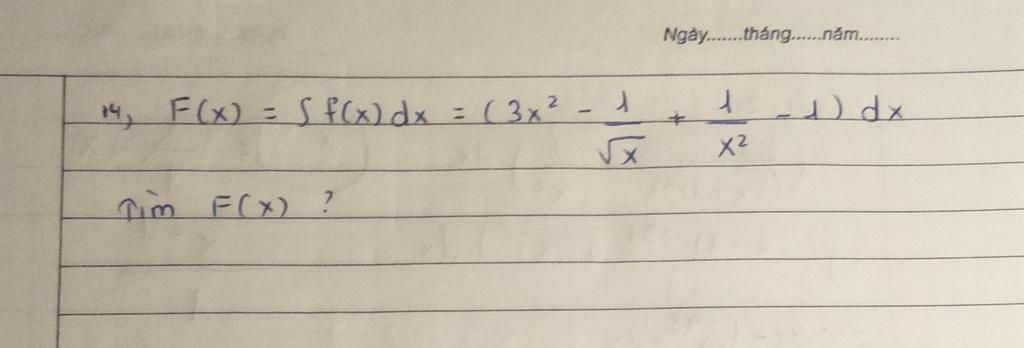 Ngày.......tháng......năm........
14, F(x) = ∫ f(x) dx = (3x² - 1/√x + 1/x² - 1) dx
Tìm F(x) ?